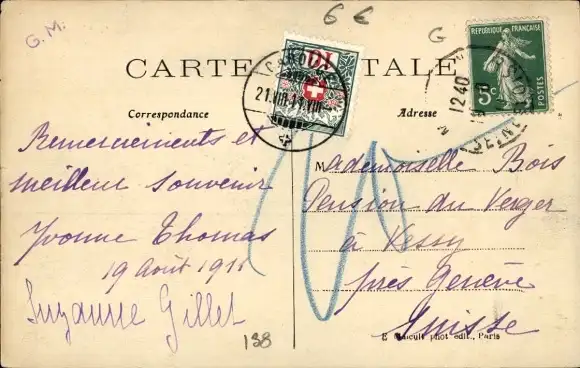 G.M.
6 €
G
CARTE POSTALE
RÉPUBLIQUE FRANÇAISE
5c
POSTES
10
CAROUGE
21.VIII.11
12 40
Correspondance
Adresse
Remerciements et
meilleur souvenir
Yvonne Thomas
19 Août 1911
Suzanne Gillet
138
Mademoiselle Bois
Pension du Verger
à Vessy
près Genève
Suisse
phot edit., Paris